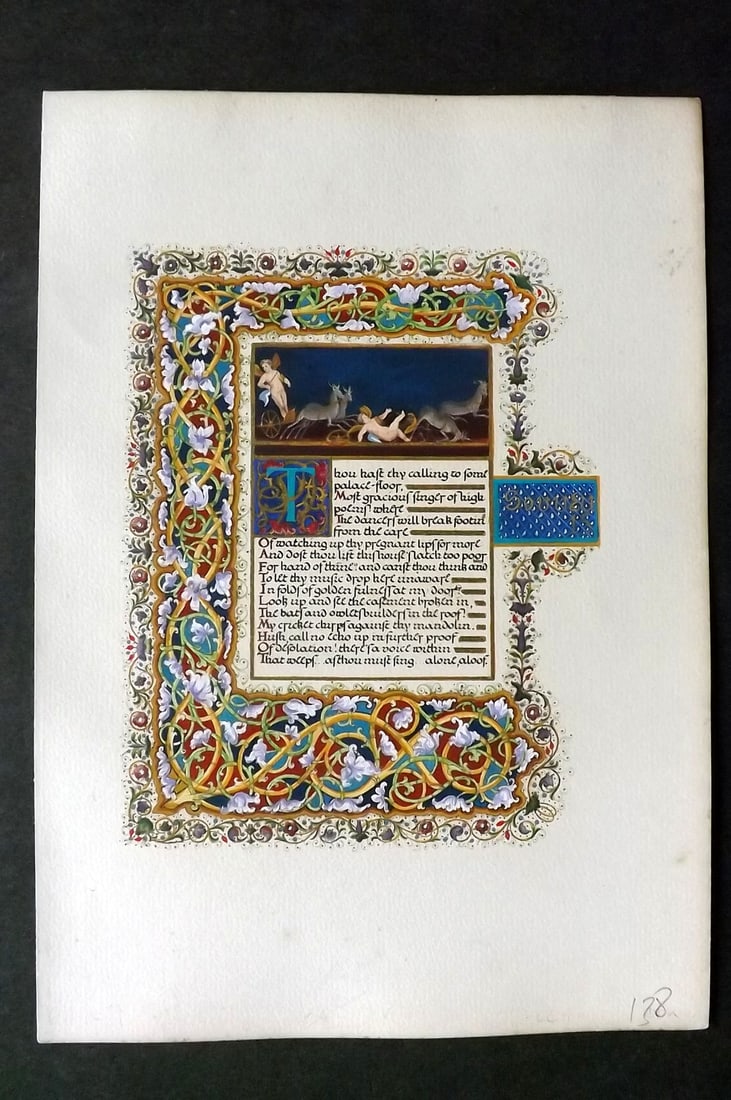 Thou hast thy calling to some
palace-floor,
Most gracious singer of high
poems where
The dancers will break footing
from the care
Of watching up thy pregnant lips for more
And dost thou lift this house's latch too poor
For hand of thine? and canst thou think and
To let thy music drop here unaware
In folds of golden fulness at my door?
Look up and see the casement broken in,
The bats and owlets builders in the roof!
My cricket chirps against thy mandolin.
Hush, call no echo up in further proof
Of desolation! there's a voice within
That weeps.. as thou must sing. alone, aloof.
138